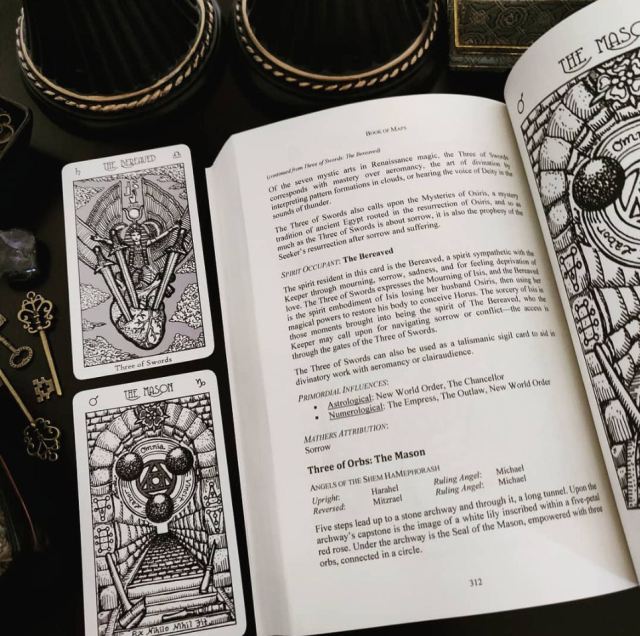 THE BEREAVED
Three of Swords
THE MASON
Omnia
Ex Nihilo Nihil Fit
BOOK OF MAPS
(continued from Three of Swords: The Bereaved)
Of the seven mystic arts in Renaissance magic, the Three of Swords
corresponds with mastery over aeromancy, the art of divination by
interpreting pattern formations in clouds, or hearing the voice of Deity in the
sounds of thunder.
The Three of Swords also calls upon the Mysteries of Osiris, a mystery
tradition of ancient Egypt rooted in the resurrection of Osiris, and so as
much as the Three of Swords is about sorrow, it is also the prophecy of the
Seeker's resurrection after sorrow and suffering.
SPIRIT OCCUPANT: The Bereaved
The spirit resident in this card is the Bereaved, a spirit sympathetic with the
Keeper through mourning, sorrow, sadness, and for feeling deprivation of
love. The Three of Swords expresses the mourning of Isis, and the Bereaved
is the spirit embodiment of Isis losing her husband Osiris, then using her
magical powers to restore his body to conceive Horus. The sorcery of Isis in
those moments brought into being the spirit of The Bereaved, who the
Keeper may call upon for navigating sorrow or conflict—the access is
through the gates of the Three of Swords.
The Three of Swords can also be used as a talismanic sigil card to aid in
divinatory work with aeromancy or clairaudience.
PRIMORDIAL INFLUENCES:
• Astrological: New World Order, The Chancellor
• Numerological: The Empress, The Outlaw, New World Order
MATHERS ATTRIBUTION:
Sorrow
Three of Orbs: The Mason
ANGELS OF THE SHEM HAMEPHORASH
Upright: Harahel Ruling Angel: Michael
Reversed: Mitzrael Ruling Angel: Michael
Five steps lead up to a stone archway and through it, a long tunnel. Upon the
archway's capstone is the image of a white lily inscribed within a five-petal
red rose. Under the archway is the Seal of the Mason, empowered with three
orbs, connected in a circle.
312
THE MASO
Omnia